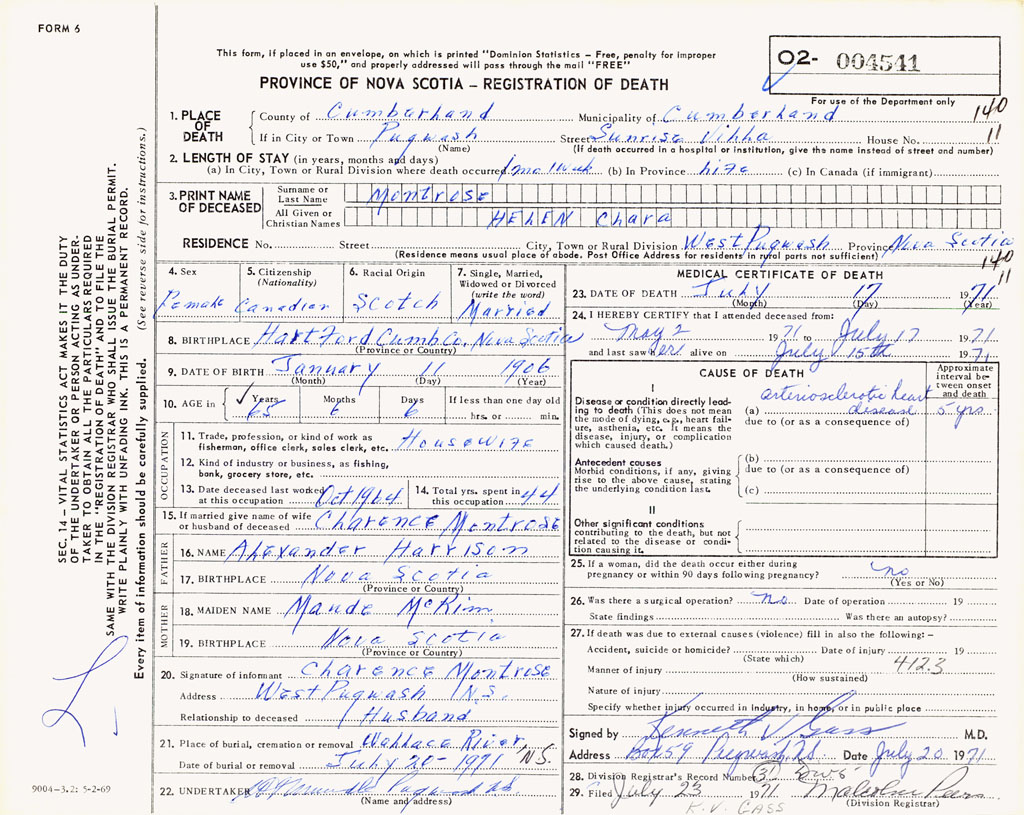 FORM 6
This form, if placed in an envelope, on which is printed "Dominion Statistics – Free, penalty for improper
use $50," and properly addressed will pass through the mail "FREE"
PROVINCE OF NOVA SCOTIA – REGISTRATION OF DEATH
O2- 004541
For use of the Department only
140
11
1. PLACE OF DEATH
County of Cumberland Municipality of Cumberland
If in City or Town Pugwash Street Sunrise Villa House No.
(Name) (If death occurred in a hospital or institution, give the name instead of street and number)
2. LENGTH OF STAY (in years, months and days)
(a) In City, Town or Rural Division where death occurred 1 mo 1 wk (b) In Province Life (c) In Canada (if immigrant)
3. PRINT NAME OF DECEASED
Surname or Last Name Montrose
All Given or Christian Names HELEN Clara
RESIDENCE No. Street City, Town or Rural Division West Pugwash Province Nova Scotia
(Residence means usual place of abode. Post Office Address for residents in rural parts not sufficient)
140
11
4. Sex Female
5. Citizenship (Nationality) Canadian
6. Racial Origin Scotch
7. Single, Married, Widowed or Divorced (write the word) Married
8. BIRTHPLACE Hartford Cumb. Co. Nova Scotia
(Province or Country)
9. DATE OF BIRTH January 11 1906
(Month) (Day) (Year)
10. AGE in Years 65 Months 6 Days 6 If less than one day old
hrs. or min.
OCCUPATION
11. Trade, profession, or kind of work as fisherman, office clerk, sales clerk, etc. Housewife
12. Kind of industry or business, as fishing, bank, grocery store, etc.
13. Date deceased last worked at this occupation Oct 1964
14. Total yrs. spent in this occupation 44
15. If married give name of wife or husband of deceased Clarence Montrose
FATHER
16. NAME Alexander Harrison
17. BIRTHPLACE Nova Scotia
(Province or Country)
MOTHER
18. MAIDEN NAME Maude McKim
19. BIRTHPLACE Nova Scotia
(Province or Country)
20. Signature of informant Clarence Montrose
Address West Pugwash N.S.
Relationship to deceased Husband
21. Place of burial, cremation or removal Wallace River, N.S.
Date of burial or removal July 20 - 1971
22. UNDERTAKER Pugwash
(Name and address)
MEDICAL CERTIFICATE OF DEATH
23. DATE OF DEATH July 17 1971
(Month) (Day) (Year)
24. I HEREBY CERTIFY that I attended deceased from:
May 2 1971 to July 17 1971
and last saw her alive on July 15th 1971
CAUSE OF DEATH
Approximate interval between onset and death
I
Disease or condition directly leading to death (This does not mean the mode of dying, e.g., heart failure, asthenia, etc. It means the disease, injury, or complication which caused death.)
(a) arteriosclerotic heart disease 5 yrs
due to (or as a consequence of)
Antecedent causes
Morbid conditions, if any, giving rise to the above cause, stating the underlying condition last.
(b)
due to (or as a consequence of)
(c)
II
Other significant conditions
contributing to the death, but not related to the disease or condition causing it.
25. If a woman, did the death occur either during
pregnancy or within 90 days following pregnancy? no
(Yes or No)
26. Was there a surgical operation? no Date of operation 19
State findings Was there an autopsy?
27. If death was due to external causes (violence) fill in also the following: –
Accident, suicide or homicide? Date of injury 19
(State which) 412.3
Manner of injury
(How sustained)
Nature of injury
Specify whether injury occurred in industry, in home, or in public place
Signed by Kenneth V Gass M.D.
Address Box 59 Pugwash, N.S. Date July 20 1971
28. Division Registrar's Record Number 3
29. Filed July 23 1971 Malcolm
(Division Registrar)
K.V. GASS
9004-3.2: 5-2-69
SEC. 14 – VITAL STATISTICS ACT MAKES IT THE DUTY
OF THE UNDERTAKER OR PERSON ACTING AS UNDER-
TAKER TO OBTAIN ALL THE PARTICULARS REQUIRED
IN THE "REGISTRATION OF DEATH" AND TO FILE THE
SAME WITH THE DIVISION REGISTRAR WHO SHALL ISSUE THE BURIAL PERMIT.
WRITE PLAINLY WITH UNFADING INK. THIS IS A PERMANENT RECORD.
Every item of information should be carefully supplied. (See reverse side for instructions.)